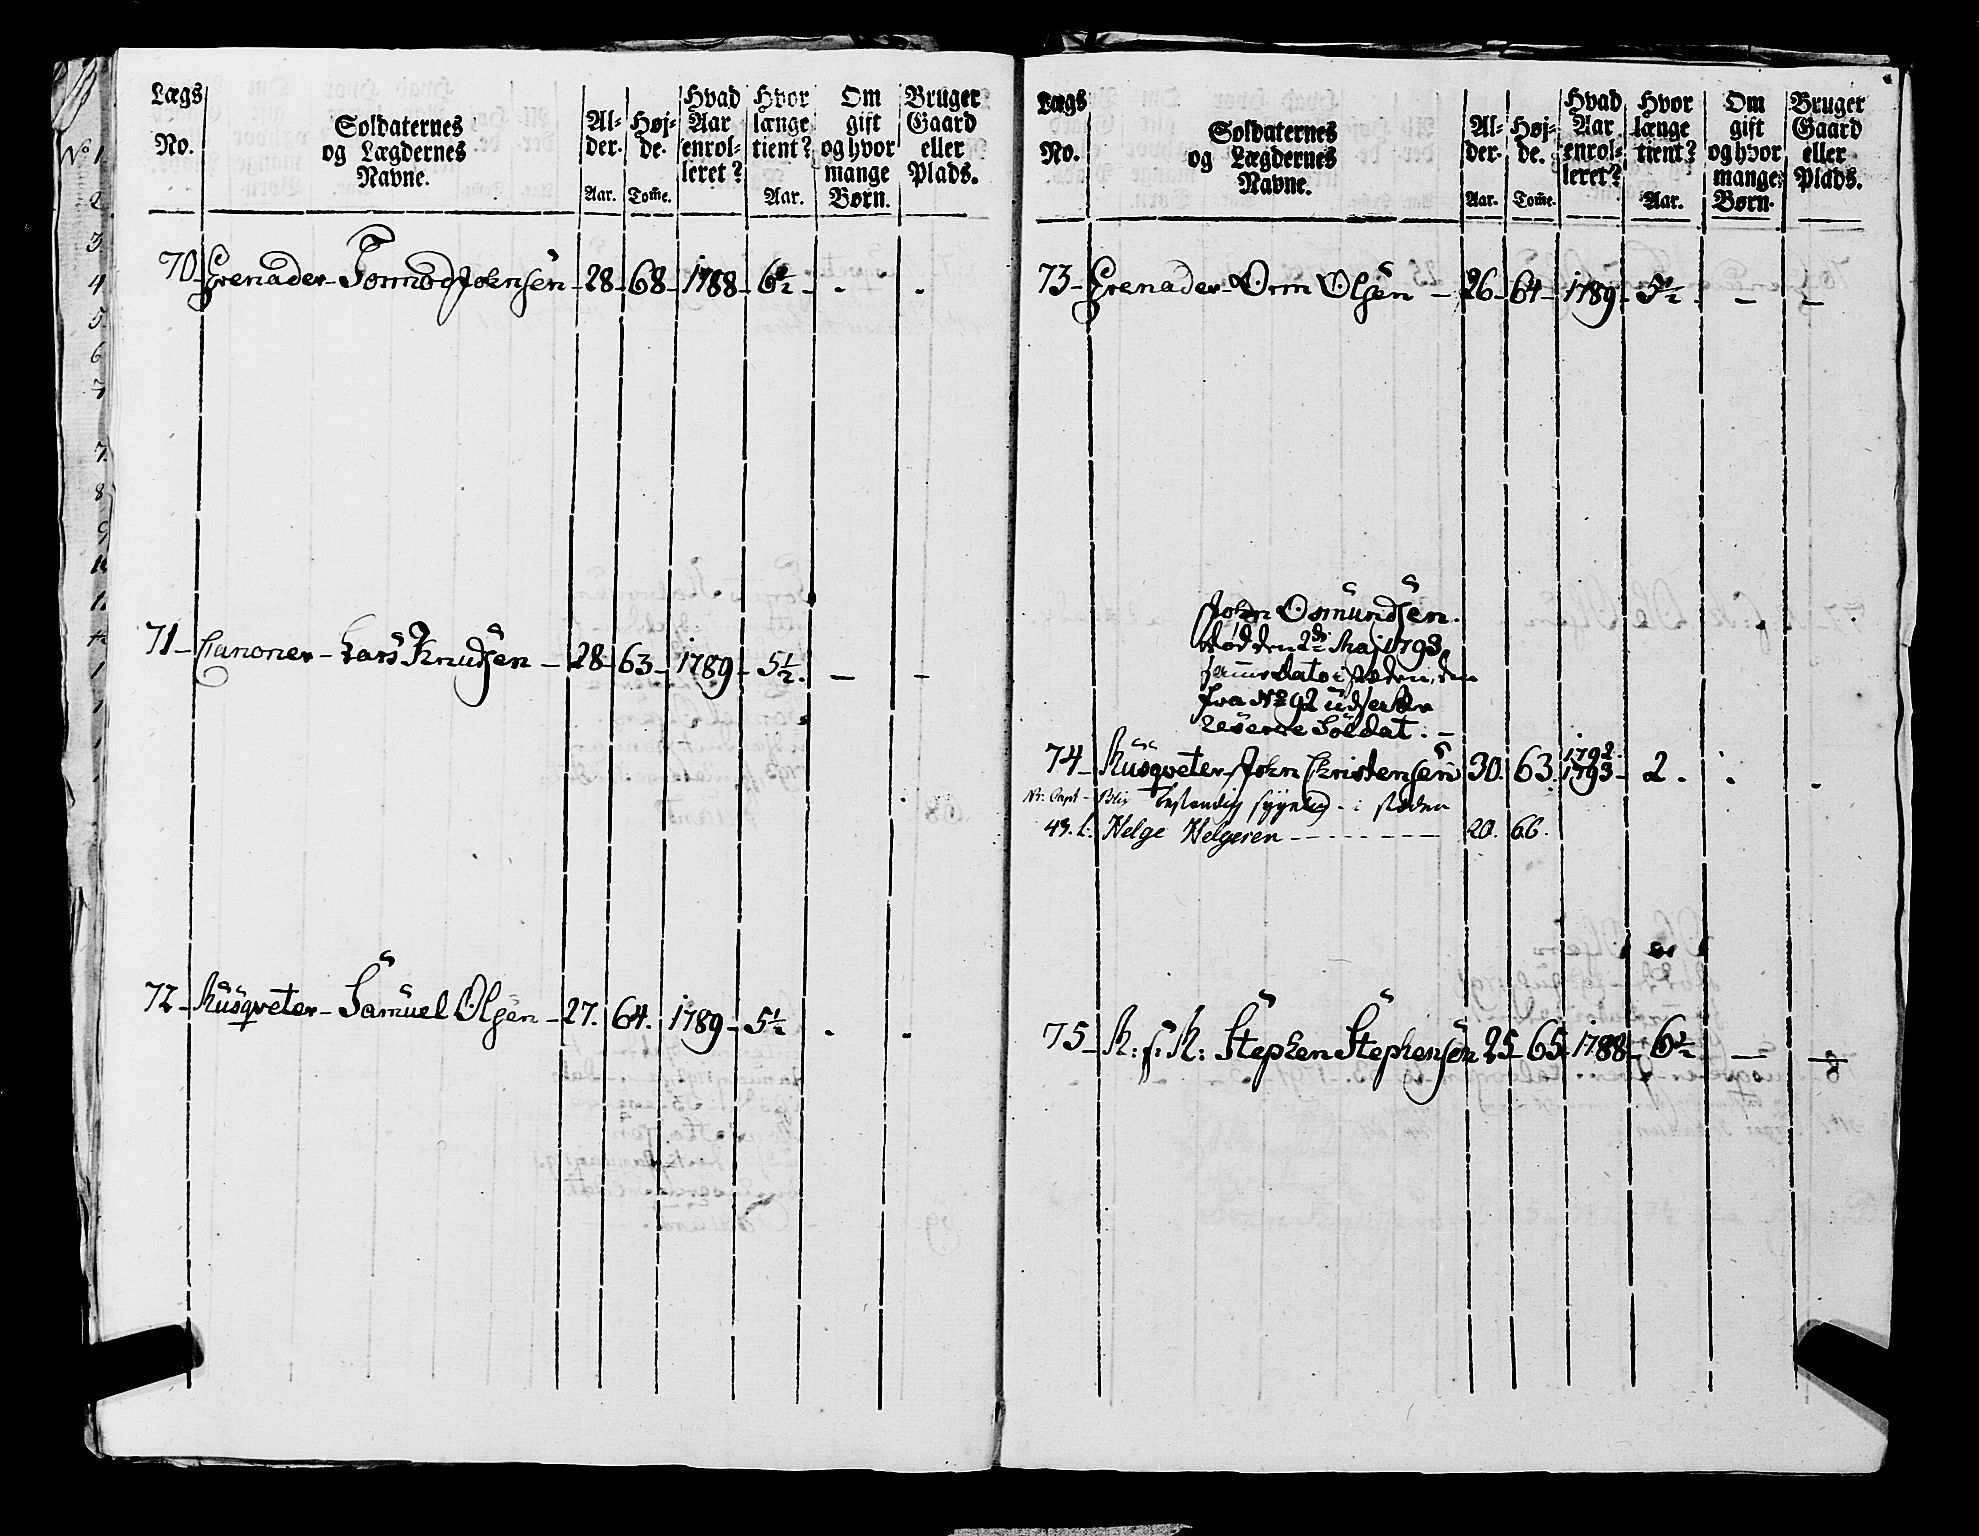 Lægs No. | Soldaternes og Lægdernes Navne. | Al-der. Aar. | Høj-de. Tom̃e. | Hvad Aar enrol-leret? | Hvor længe tient? Aar. | Om gift og hvor mange Børn. | Bruger Gaard eller Plads.
70 - Grenader - Tormod Johnsen - 28 - 68 - 1788 - 6½ - - -
71 - Canoner - Lars Knudsen - 28 - 63 - 1789 - 5½. - -
72 - Musqveter - Samuel Olsen - 27. 64. 1789 - 5½ - -
Lægs No. | Soldaternes og Lægdernes Navne. | Al-der. Aar. | Høj-de. Tom̃e. | Hvad Aar enrol-leret? | Hvor længe tient? Aar. | Om gift og hvor mange Børn. | Bruger Gaard eller Plads.
73 - Grenader - Orm Olsen - 26 - 64 - 1789 - 5½ - - -
John Osmundsen.
død den 2de Maj 1793
dato i stæden, den
fra No 92
reserve Soldat. -
1792.
74 - Musqveter - John Christensen 30. 63. 1793 - 2. - -
bestandig sygelig - i stæden
Helge Helgesen - - - - 20. 66.
75 - M: s: K: Stephen Stephensen 25 - 65 - 1788 - 6½ - -
N° 1
2
3
4
5
6
7
7
8
9